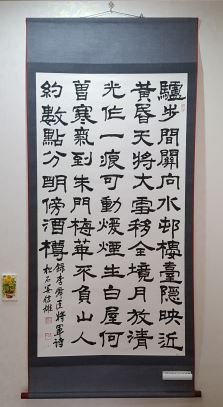 驢步間關向水邨樓臺隱映近
黃昏天將大雪務全境月放淸
光作一痕可動煖煙生白屋何
曾寒氣到朱門梅華不負山人
約數點分明傍酒樽
錄李臣將軍詩
松石